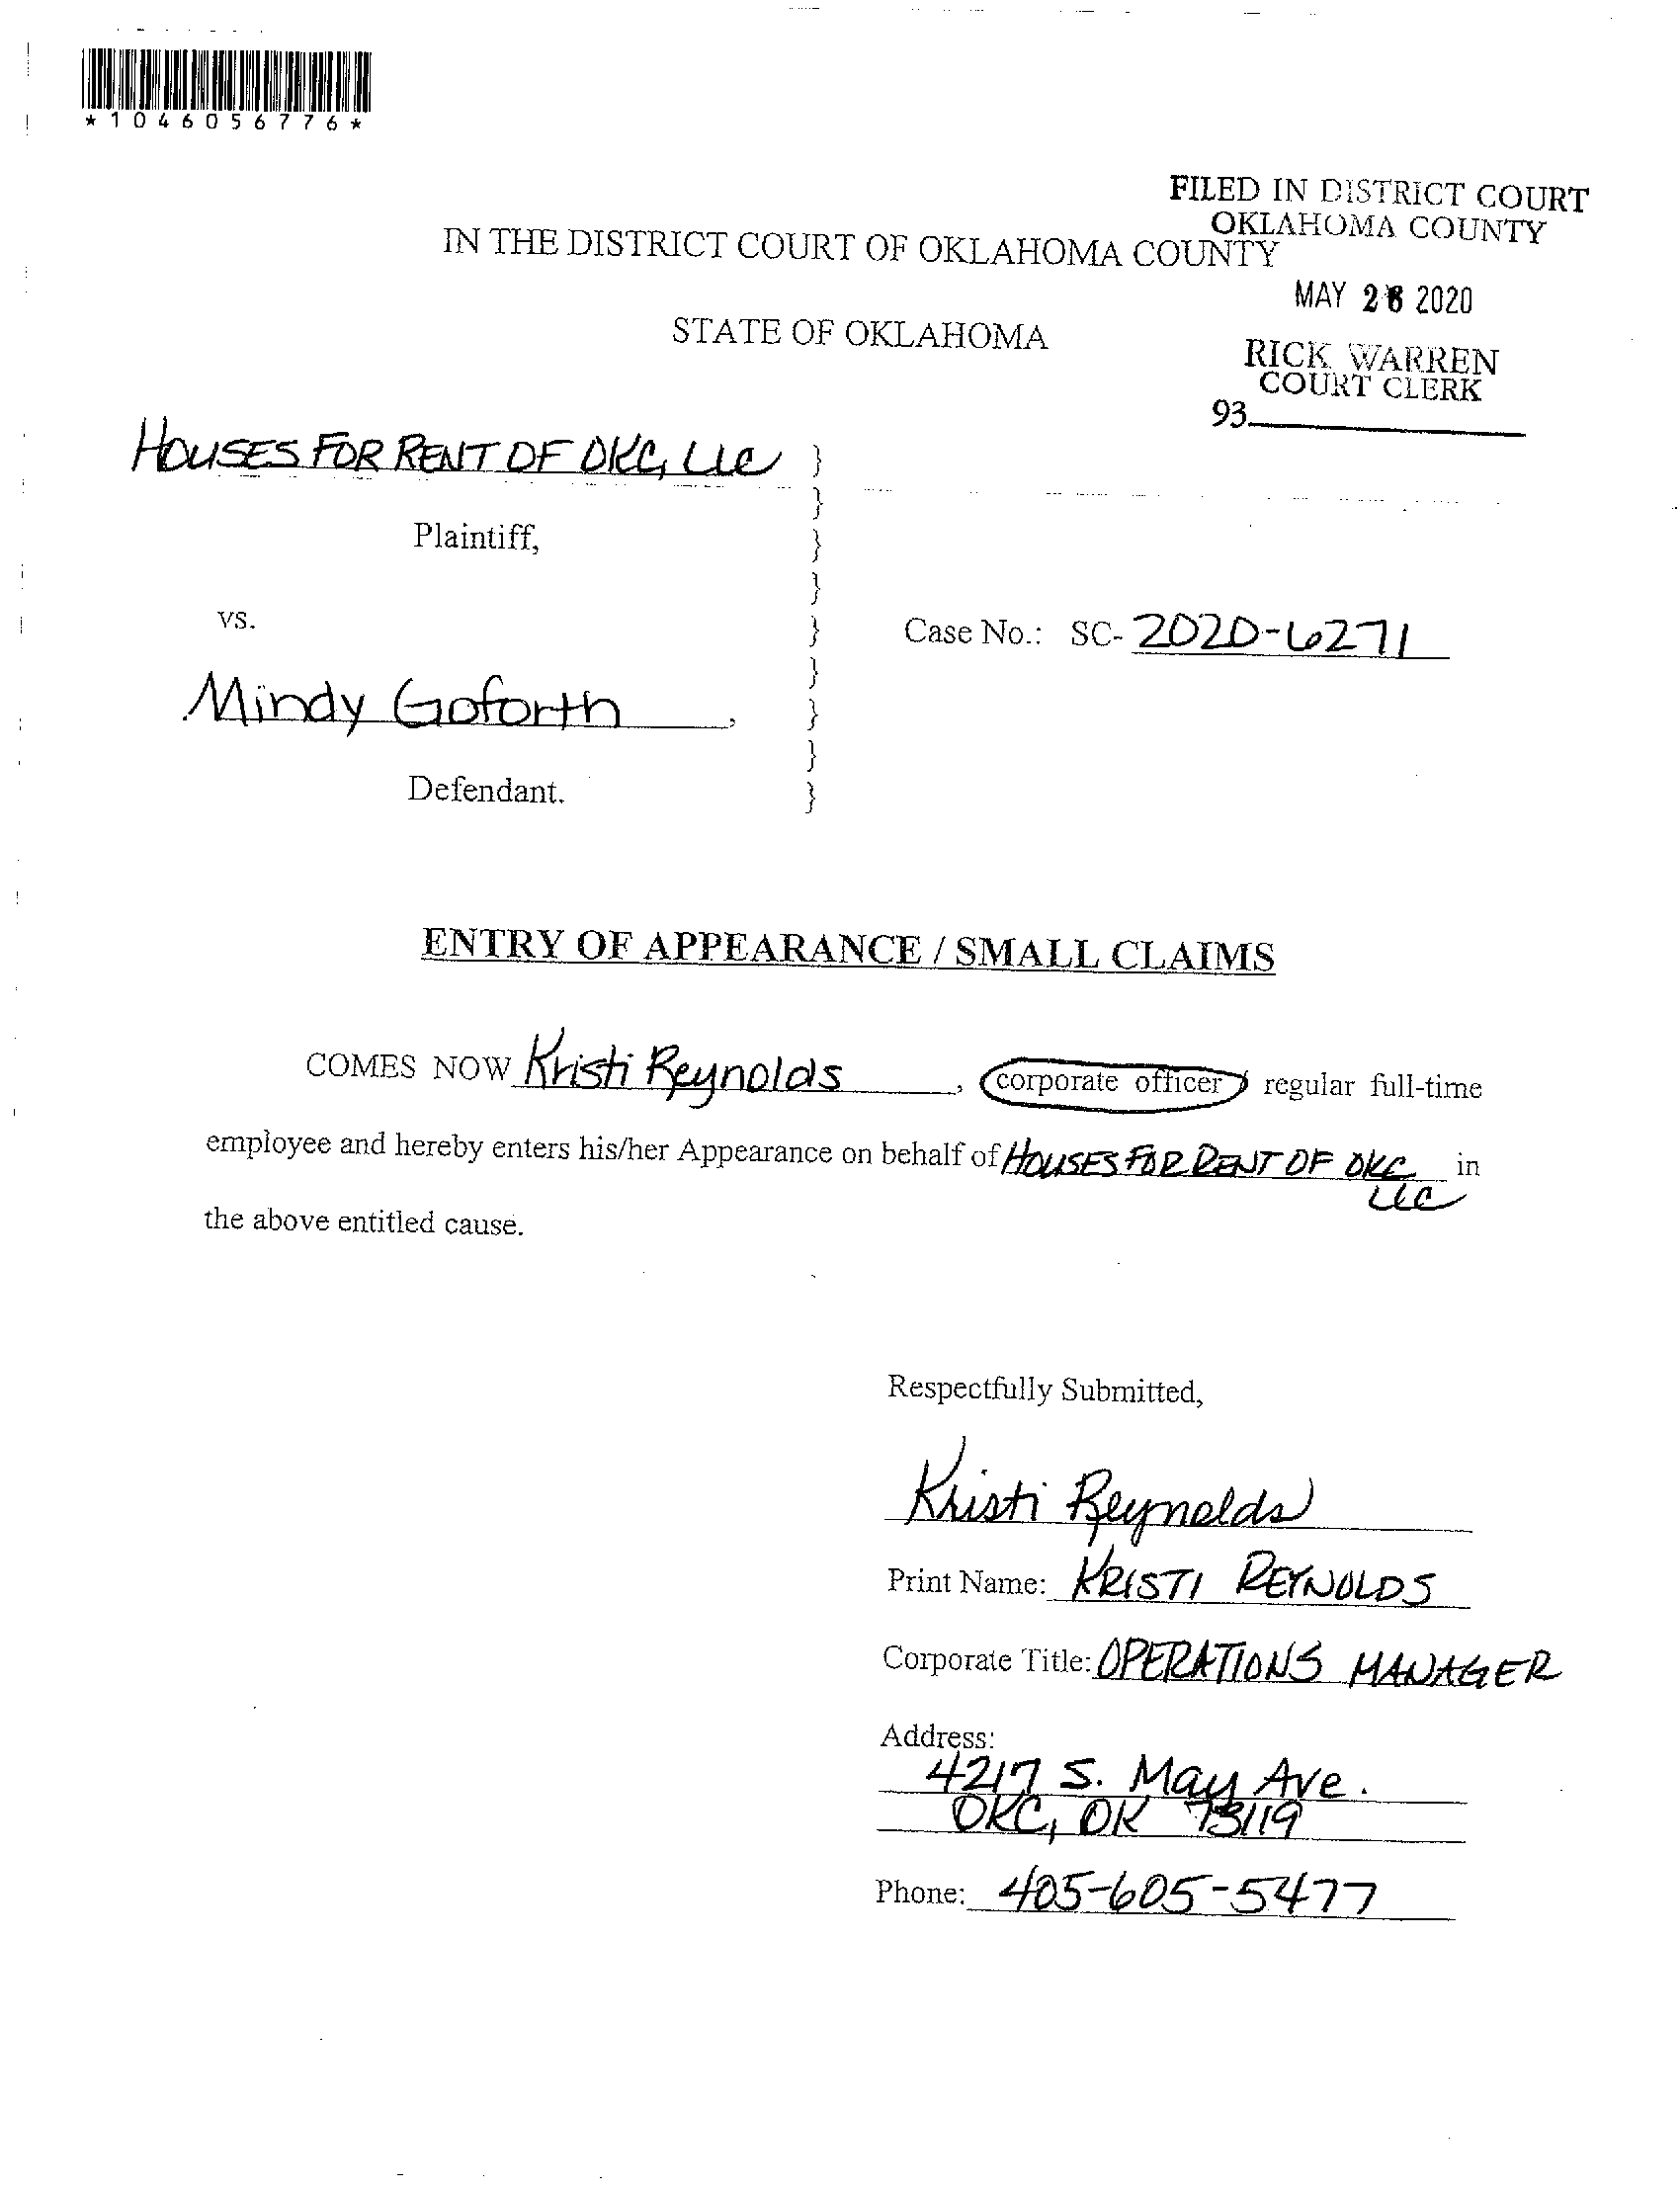 *1046056776*
FILED IN DISTRICT COURT
OKLAHOMA COUNTY
IN THE DISTRICT COURT OF OKLAHOMA COUNTY
MAY 2 2020
STATE OF OKLAHOMA
RICK WARREN
COURT CLERK
93
HOUSES FOR RENT OF OKC, LLC }
}
Plaintiff, }
}
vs. } Case No.: SC- 2020-6271
}
Mindy Goforth, }
}
Defendant. }
ENTRY OF APPEARANCE / SMALL CLAIMS
COMES NOW Kristi Reynolds, corporate officer / regular full-time
employee and hereby enters his/her Appearance on behalf of HOUSES FOR RENT OF OKC in
LLC
the above entitled cause.
Respectfully Submitted,
Kristi Reynolds
Print Name: KRISTI REYNOLDS
Corporate Title: OPERATIONS MANAGER
Address:
4217 S. May Ave.
OKC, OK 73119
Phone: 405-605-5477